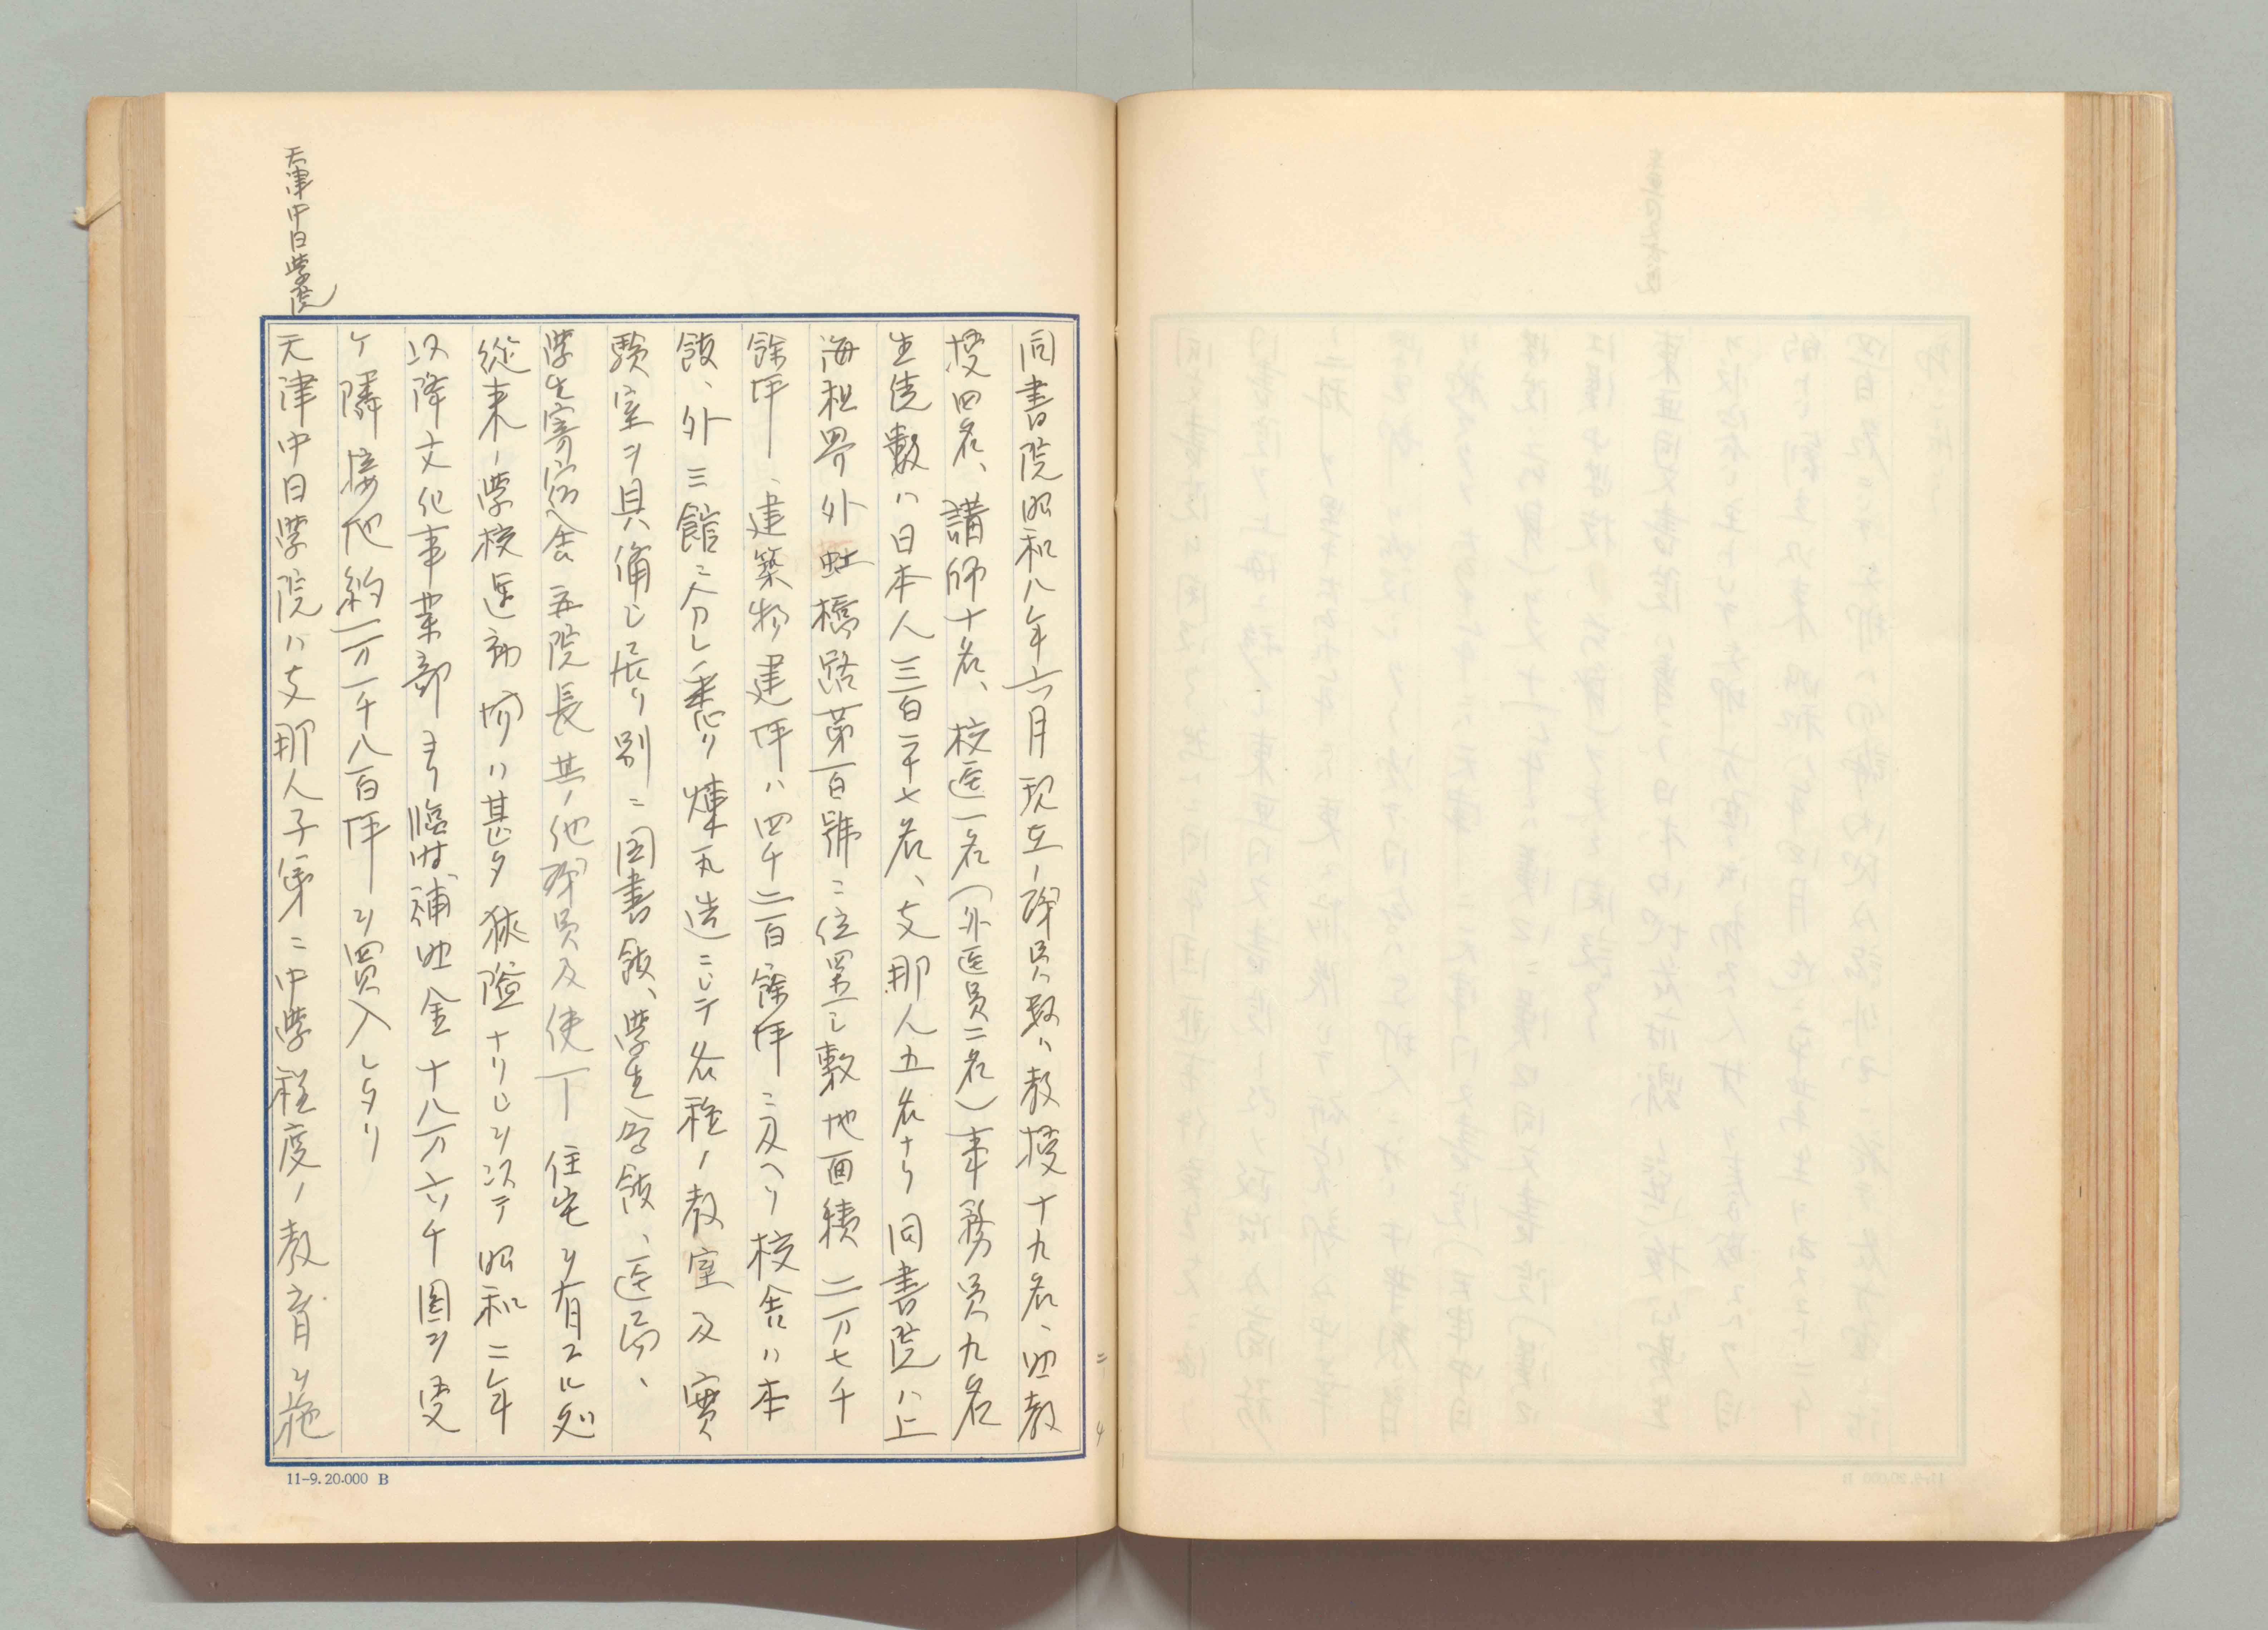 同書院昭和八年六月現在ノ職員数ハ教授十九名、助教
授四名、講師十名、校医一名(外医員二名)事務員九名
生徒數ハ日本人三百二十七名、支那人五名ナリ同書院ハ上
海租界外虹橋路第百號ニ位置シ敷地面積二万七千
餘坪、建築物建坪ハ四千二百餘坪ニ及ヘリ校舎ハ本
館、外三館ニ分レ悉ク煉瓦造ニシテ各種ノ教室及實
験室ヲ具備シ居リ別ニ図書館、學生會館、医局、
學生寄宿舎並院長其ノ他職員及使丁住宅ヲ有スル処
從来ノ學校運動場ハ甚タ狭隘ナリシヲ以テ昭和二年
以降文化事業部ヨリ臨時補助金十八万六千圓ヲ受
ケ隣接地約一万一千八百坪ヲ買入レタリ
天津中日學院
天津中日學院ハ支那人子弟ニ中學程度ノ教育ヲ施
11-9.20.000 B